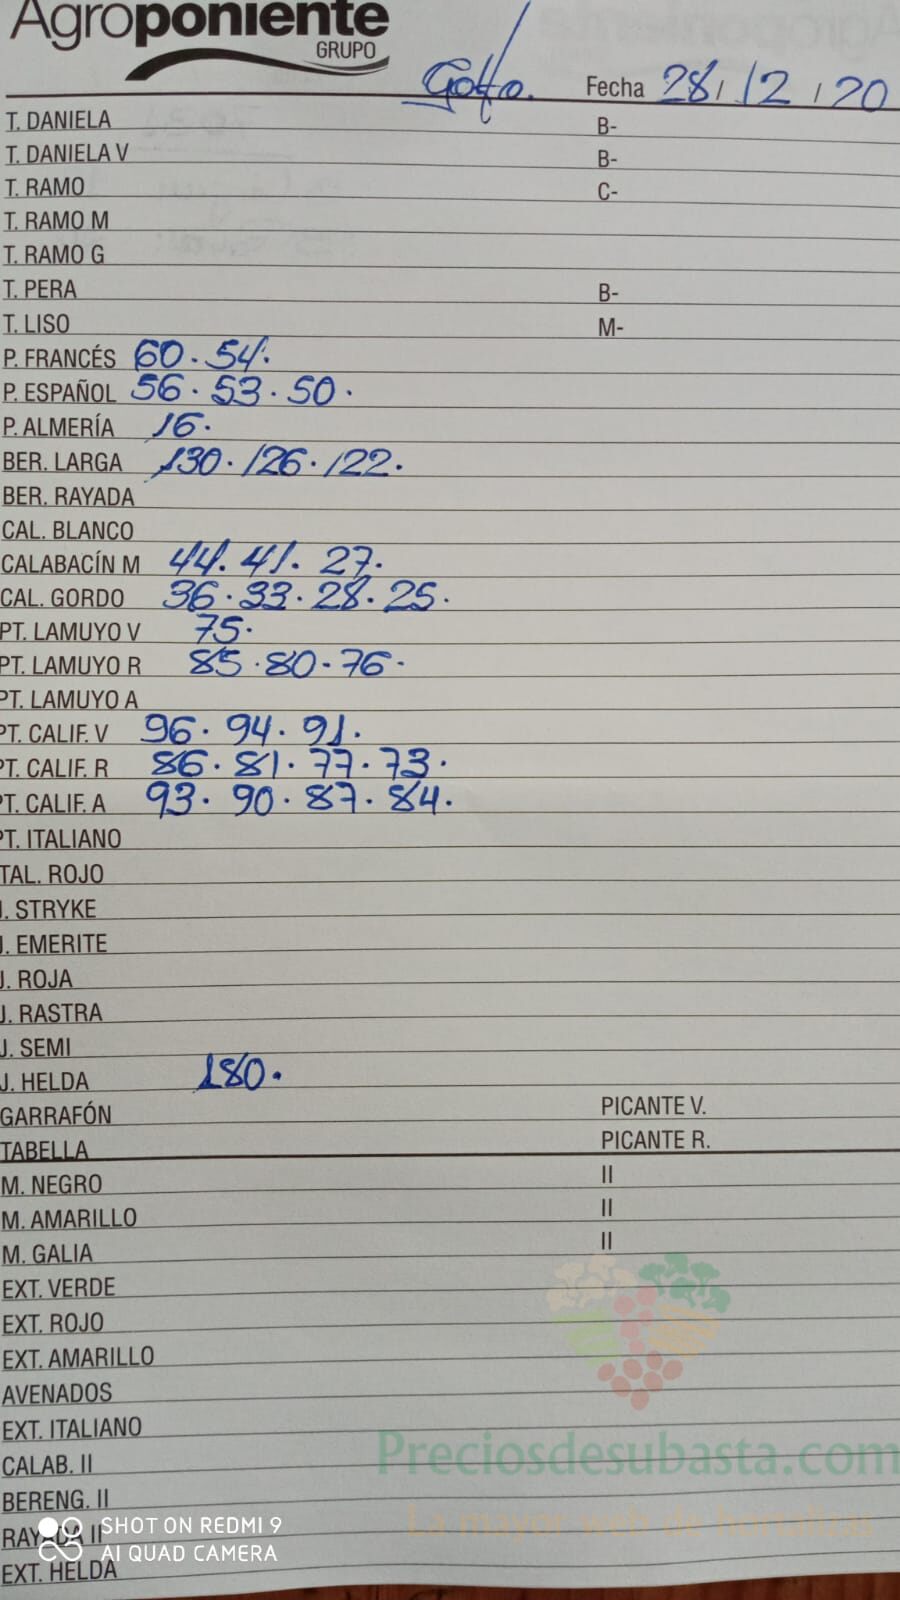 Agroponiente
GRUPO
Golfo. Fecha 28/12/20
T. DANIELA B-
T. DANIELA V B-
T. RAMO C-
T. RAMO M
T. RAMO G
T. PERA B-
T. LISO M-
P. FRANCÉS 60. 54.
P. ESPAÑOL 56. 53. 50.
P. ALMERÍA 16.
BER. LARGA 130. 126. 122.
BER. RAYADA
CAL. BLANCO
CALABACÍN M 44. 41. 27.
CAL. GORDO 36. 33. 28. 25.
PT. LAMUYO V 75.
PT. LAMUYO R 85. 80. 76.
PT. LAMUYO A
PT. CALIF. V 96. 94. 91.
PT. CALIF. R 86. 81. 77. 73.
PT. CALIF. A 93. 90. 87. 84.
PT. ITALIANO
TAL. ROJO
J. STRYKE
J. EMERITE
J. ROJA
J. RASTRA
J. SEMI
J. HELDA 180.
GARRAFÓN PICANTE V.
TABELLA PICANTE R.
M. NEGRO II
M. AMARILLO II
M. GALIA II
EXT. VERDE
EXT. ROJO
EXT. AMARILLO
AVENADOS
EXT. ITALIANO
Preciosdesubasta.com
CALAB. II
BERENG. II
La mayor web de hortalizas
RAYADA II
SHOT ON REDMI 9
AI QUAD CAMERA
EXT. HELDA